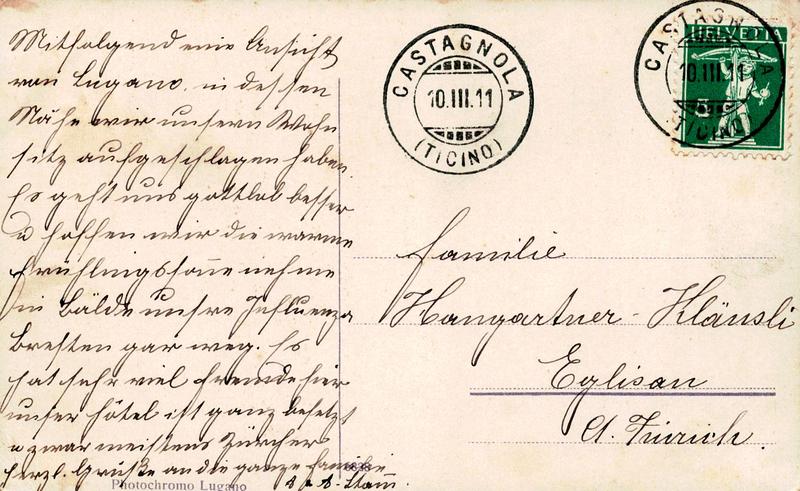 Mitfolgend eine Ansicht
von Lugano, in dessen
Nähe wir unsern Wohn
sitz aufgeschlagen haben.
Es geht uns gottlob besser
u hoffen wir die warme
Frühlingssonne nehme
in Bälde unsre Influenza
Bresten gar weg. Es
hat sehr viel Fremde hier
unser Hôtel ist ganz besetzt
u zwar meistens Zürcher
Herzl. Grüße an die ganze Familie
Photochromo Lugano
CASTAGNOLA
10.III.11
(TICINO)
HELVETIA
CASTAGNOLA
10.III.11
(TICINO)
5
Familie
Hangartner-Kläusli
Eglisau
Ct. Zürich.